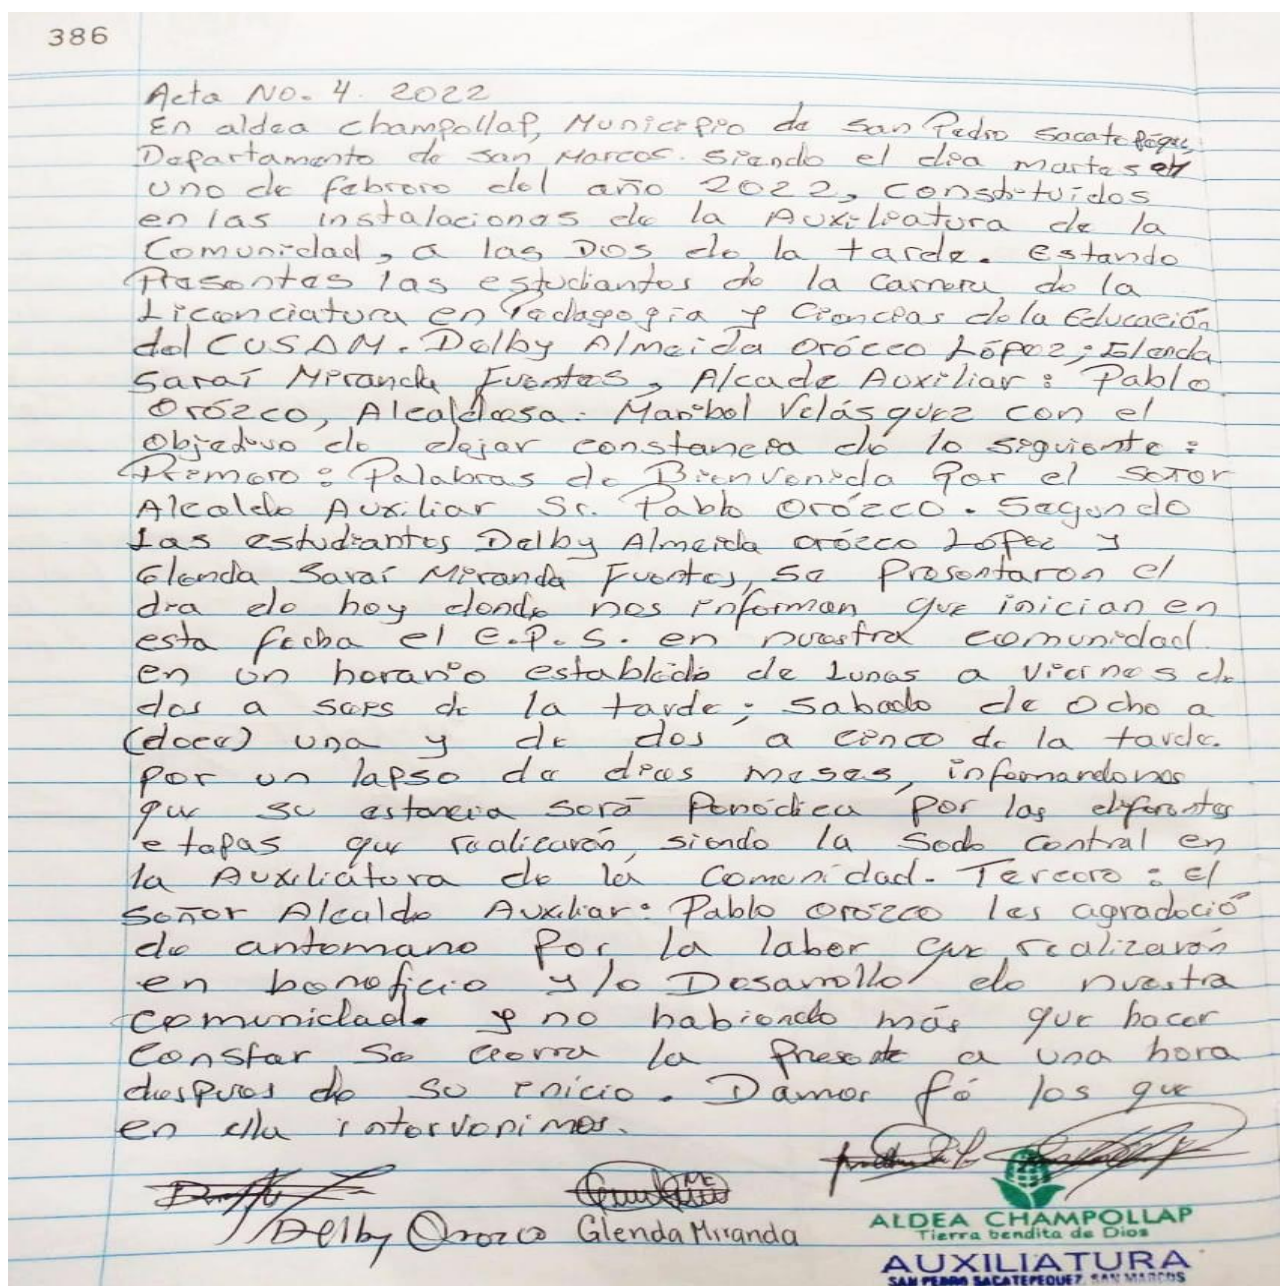 386
Acta No. 4. 2022
En aldea Champollap, Municipio de San Pedro Sacatepéquez
Departamento de San Marcos. Siendo el dia martes
uno de febrero del año 2022, constituídos
en las instalaciones de la Auxiliatura de la
Comunidad, a las Dos de la tarde. Estando
Presentes las estudiantes de la Carrera de la
Licenciatura en Pedagogía y Ciencias de la Educación
del CUSAM. Delby Almeida Orózco López; Glenda
Saraí Miranda Fuentes, Alcade Auxiliar: Pablo
Orózco, Alcaldesa: Maribel Velásquez con el
Objetivo de dejar constancia de lo siguiente:
Primero: Palabras de Bienvenida Por el señor
Alcalde Auxiliar Sr. Pablo Orózco. Segundo
Las estudiantes Delby Almeida orózco López y
Glenda Saraí Miranda Fuentes, se presentaron el
dia de hoy donde nos informan que inician en
esta fecha el E.P.S. en nuestra comunidad
en un horario establecido de Lunes a Viernes de
dos a seis de la tarde; Sabado de Ocho a
(doce) una y de dos a cinco de la tarde.
Por un lapso de diez meses, informandonos
que su estancia será Periódica por las diferentes
etapas que realizarán, siendo la Sede Central en
la Auxiliatura de la Comunidad. Tercero: el
señor Alcalde Auxiliar: Pablo orózco les agradeció
de antemano Por la labor que realizarón
en beneficio y/o Desarrollo de nuestra
comunidad. y no habiendo más que hacer
Constar Se cierra la Presente a una hora
despues de su inicio. Damos fé los que
en ella intervenimos.
Delby Orozco Glenda Miranda
ALDEA CHAMPOLLAP
Tierra bendita de Dios
AUXILIATURA
SAN PEDRO SACATEPEQUEZ, SAN MARCOS